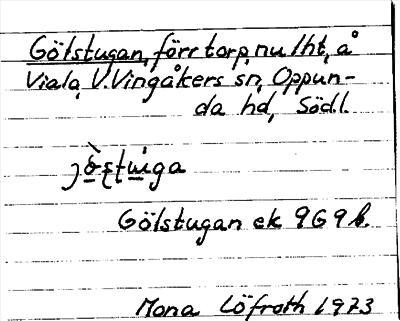 Gölstugan, förr torp, nu lht, å
Viala, V. Vingåkers sn, Oppun-
da hd, Södl.
Gölstugan ek 9G9b.
Mona Löfroth 1973